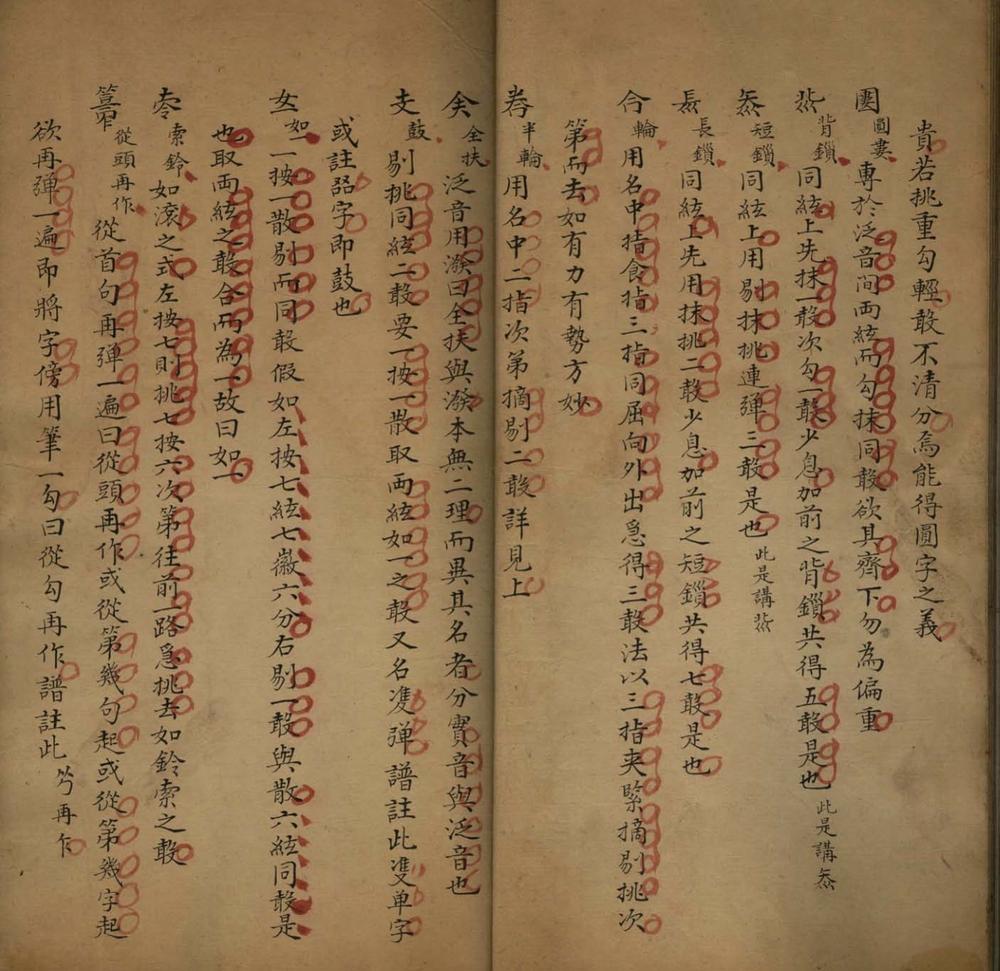 貴若挑重勾輕敢不清分焉能得圓字之義
圓婁專於泛音间兩絃而勾抹同敢欲其齊下勿為偏重
背鎖同絃上先抹一敢次勾一敢少息加前之背鎖共得五敢是也此是講
短鎖同絃上用剔抹挑連彈三敢是也此是講
長鎖同絃上先用抹挑二敢少息加前之短鎖共得七敢是也
合輪用名中指食指三指同屈向外出急得三敢法以三指夹緊摘剔挑次
第而去如有力有勢方妙
半輪用名中二指次第摘剔二敢詳見上
全扶泛音用潑曰全扶與潑本無二理而異其名者分實音與泛音也
支鼓剔挑同絃二敢要一按一散取兩絃如一之敢又名雙弹譜註此雙单字
或註字即鼓也
如一一按一散剔而同敢假如左按七絃七徽六分右剔一敢與散六絃同敢是
也取兩絃之敢合而為一故曰如一
索鈴如滚之式左按七則挑七按六次第往前一路急挑去如鈴索之敢
從頭再作從首句再弹一遍曰從頭再作或從第幾句起或從第幾字起
欲再弹一遍即將字傍用筆一勾曰從勾再作譜註此再乍